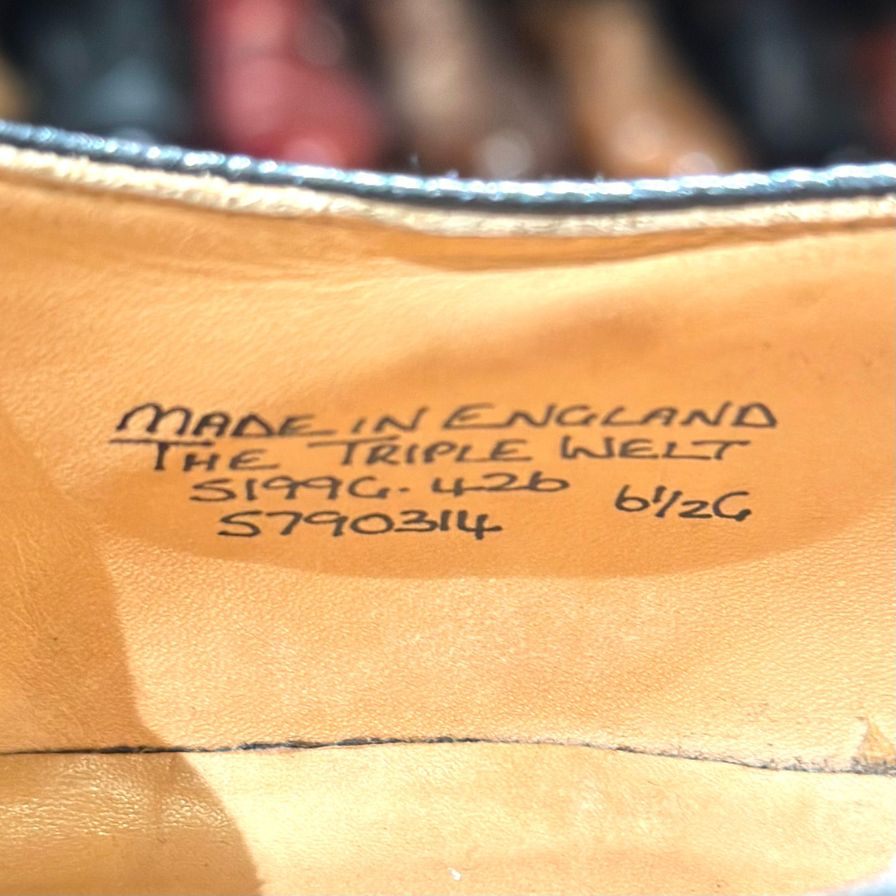 MADE IN ENGLAND
THE TRIPLE WELT
S199G.426
S790314 6½G